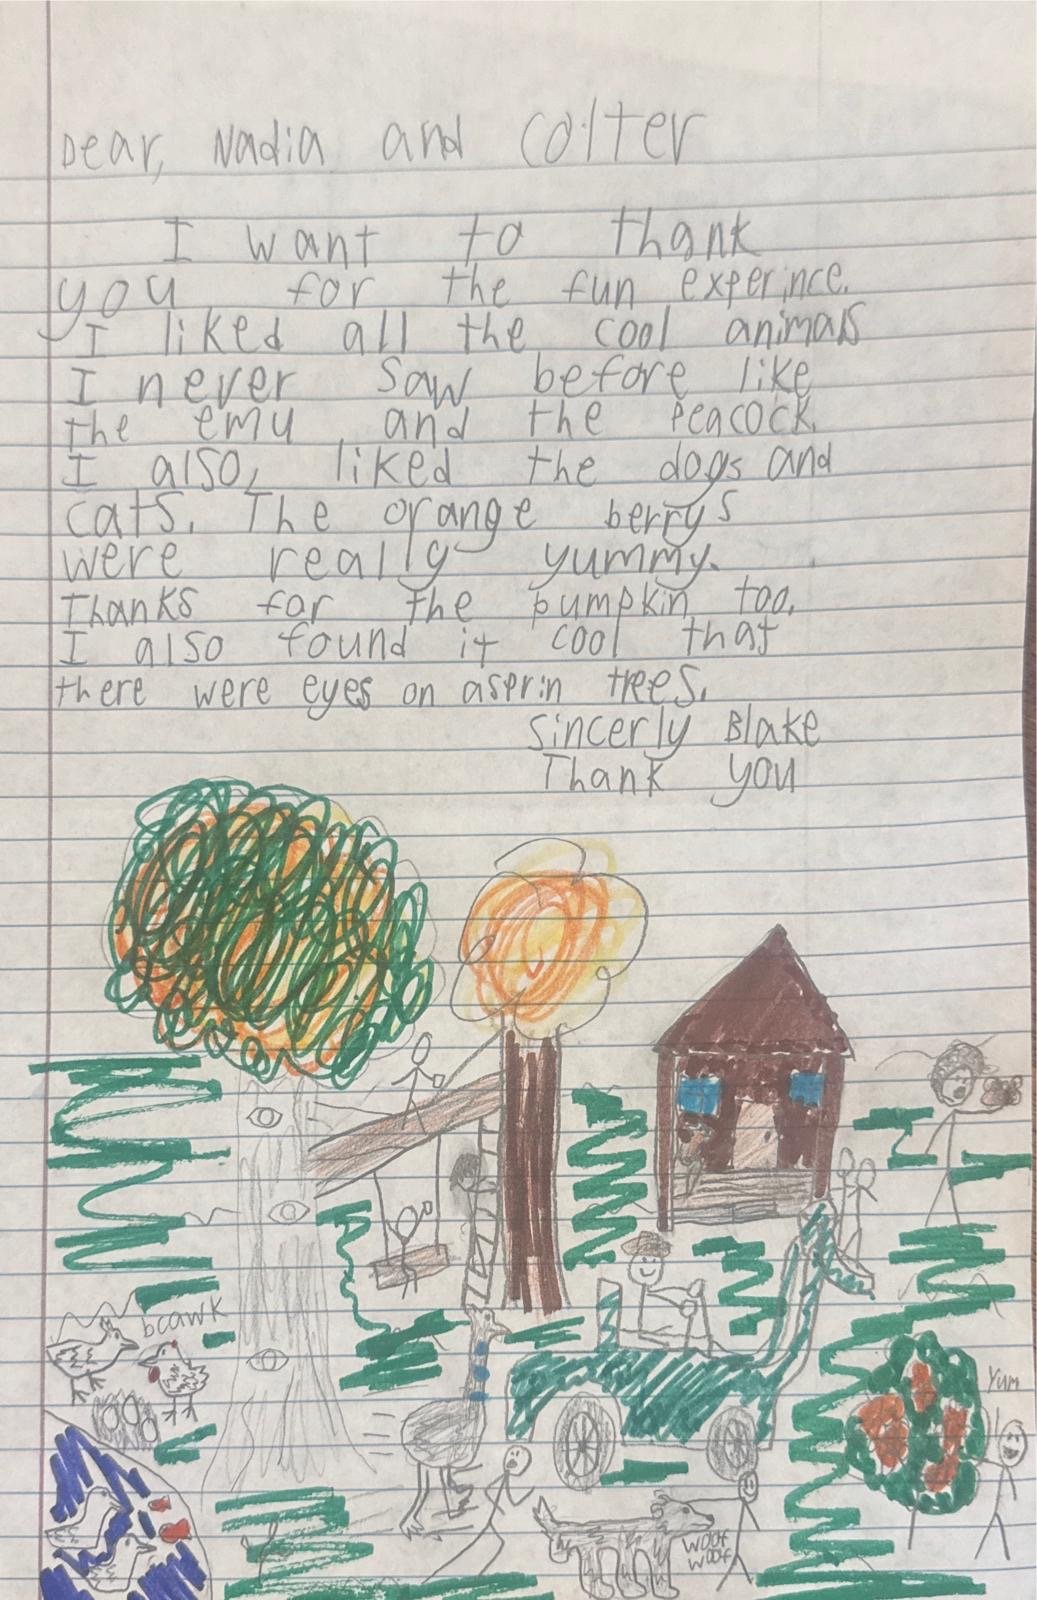 Dear, Nadia and Colter
I want to thank
you for the fun experince.
I liked all the cool animals
I never saw before like
the emu and the Peacock.
I also, liked the dogs and
cats. The orange berrys
were really yummy.
Thanks for the pumpkin too.
I also found it cool that
there were eyes on asprin trees.
Sincerly Blake
Thank you
bcawk
Yum
woof
woof